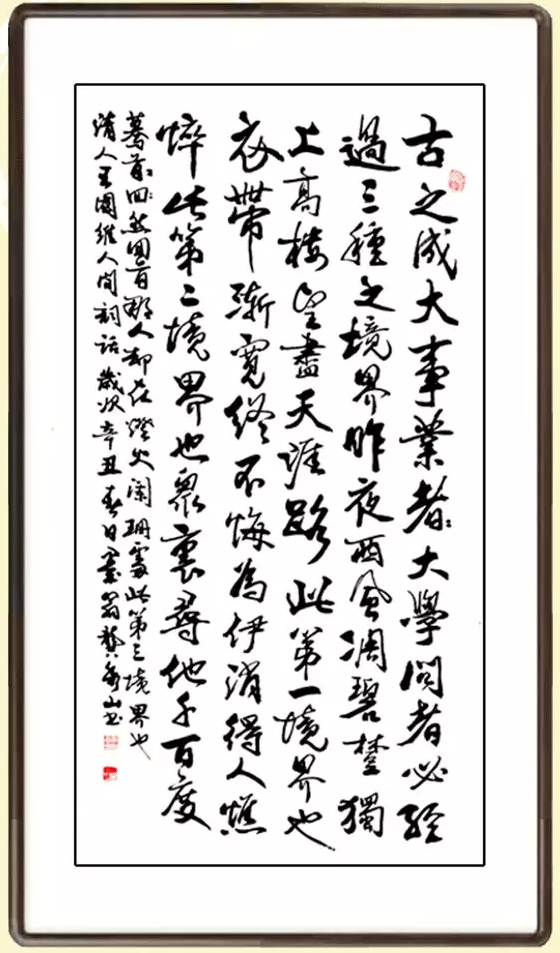 古之成大事業者大學問者必經
過三種之境界昨夜西風凋碧樹獨
上高樓望盡天涯路此第一境界也
衣帶漸寬終不悔為伊消得人憔
悴此第二境界也衆裏尋他千百度
驀首回然回首那人却在燈火闌珊處此第三境界也
清人王國維人間詞話歲次辛丑春日墨翁龔秀山书